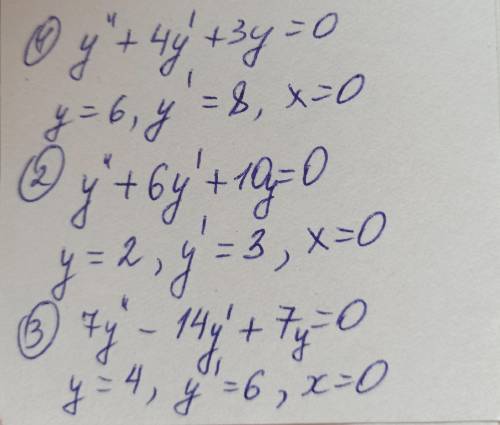 ① y'' + 4y' + 3y = 0
y = 6, y' = 8, x = 0
② y'' + 6y' + 10y = 0
y = 2, y' = 3, x = 0
③ 7y'' - 14y' + 7y = 0
y = 4, y' = 6, x = 0